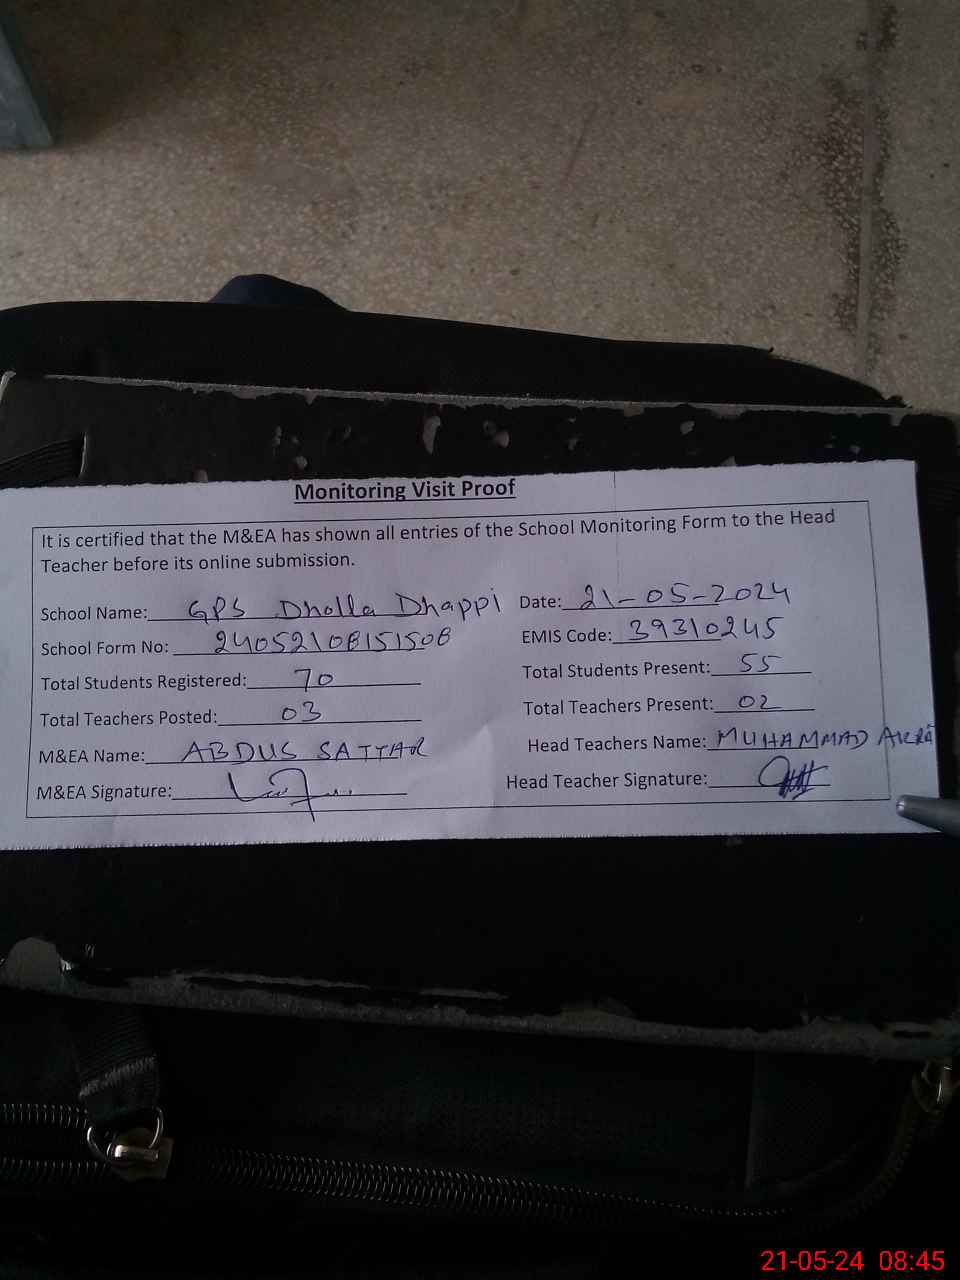 Monitoring Visit Proof
It is certified that the M&EA has shown all entries of the School Monitoring Form to the Head
Teacher before its online submission.
School Name: GPS Dholla Dhappi Date: 21-05-2024
School Form No: 24052108151508 EMIS Code: 39310245
Total Students Registered: 70 Total Students Present: 55
Total Teachers Posted: 03 Total Teachers Present: 02
M&EA Name: ABDUS SATTAR Head Teachers Name: MUHAMMAD
M&EA Signature: Head Teacher Signature:
21-05-24 08:45